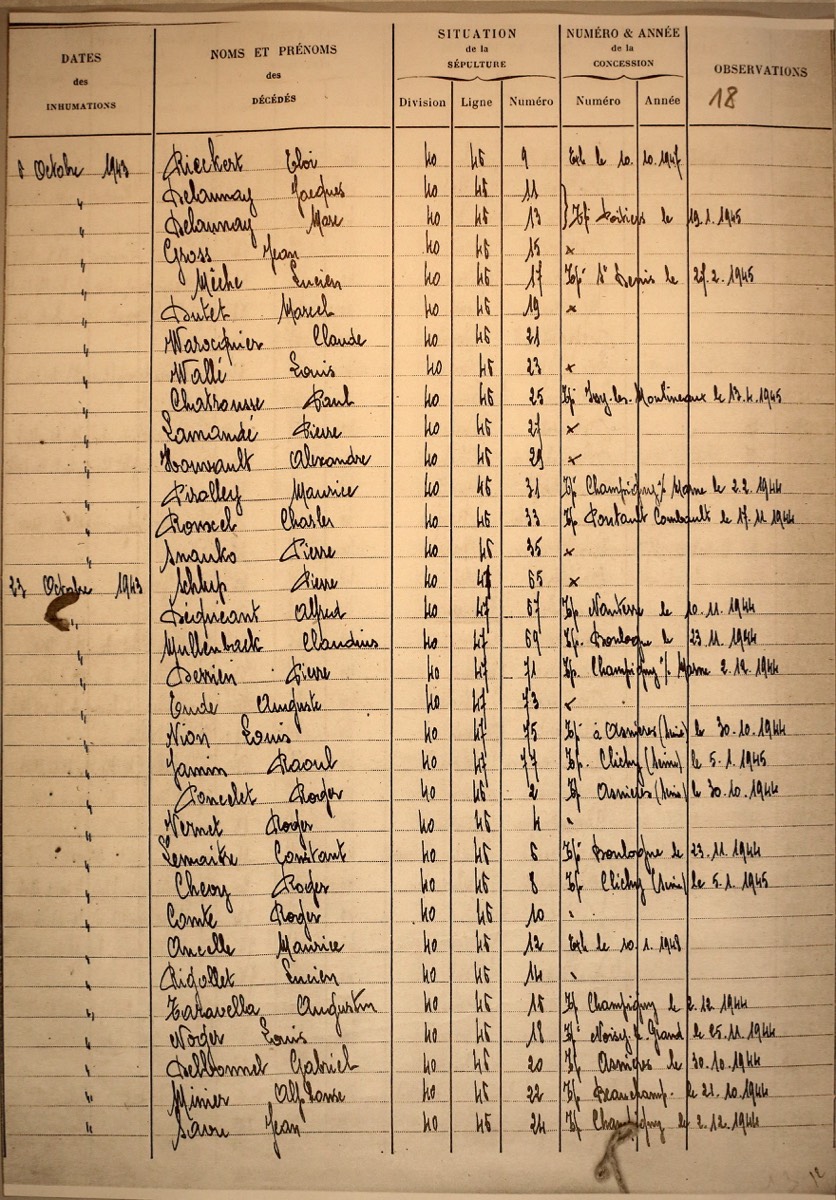 DATES des INHUMATIONS
NOMS ET PRÉNOMS des DÉCÉDÉS
SITUATION de la SÉPULTURE
Division Ligne Numéro
NUMÉRO & ANNÉE de la CONCESSION
Numéro Année
OBSERVATIONS
18
Octobre 1943 Rieckert Eloi 40 46 9 Exh le 10.10.1947
" Delaunay Jacques 40 46 11
" Delaunay Marc 40 46 13 } Tp Poitiers le 19.1.1945
" Gross Jean 40 46 15 x
" Mêche Lucien 40 46 17 Tp St Denis le 27.2.1945
" Dutet Marcel 40 46 19 x
" Warocquier Claude 40 46 21
" Wallé Louis 40 46 23 x
" Chatrousse Paul 40 46 25 Tp Issy-les-Moulineaux le 13.4.1945
" Lamandé Pierre 40 46 27 x
" Alexandre 40 46 29 x
" Piralley Maurice 40 46 31 Tp Champigny s/ Marne le 2.2.1944
" Rouxel Charles 40 46 33 Tp Pontault Combault le 17.11.1944
" Smauko Pierre 40 46 35 x
23 Octobre 1943 Schlup Pierre 40 47 65 x
" Déquéant Alfred 40 47 67 Tp Nanterre le 10.11.1944
" Mullenback Claudius 40 47 69 Tp. Boulogne le 23.11.1944
" Derrien Pierre 40 47 71 Tp. Champigny s/ Marne 2.12.1944
" Eude Auguste 40 47 73 x
" Nion Louis 40 47 75 Tp à Asnières (Seine) le 30.10.1944
" Jamin Raoul 40 47 77 Tp. Clichy (Seine) le 5.1.1945
" Poncelet Roger 40 46 2 Tp Asnières (Seine) le 30.10.1944
" Vernet Roger 40 46 4
" Lemaitre Constant 40 46 6 Tp Boulogne le 23.11.1944
" Chevy Roger 40 46 8 Tp Clichy (Seine) le 5.1.1945
" Comte Roger 40 46 10
" Ancelle Maurice 40 46 12 Exh le 10.1.1948
" Rigollet Lucien 40 46 14
" Taravella Augustin 40 46 16 Tp Champigny le 2.12.1944
" Noger Louis 40 46 18 Tp Noisy-le-Grand le 25.11.1944
" Delbonnel Gabriel 40 46 20 Tp Asnières le 30.10.1944
" Minier Alphonse 40 46 22 Tp Beauchamp. le 21.10.1944
" Savre Jean 40 46 24 Tp Champigny le 2.12.1944
12